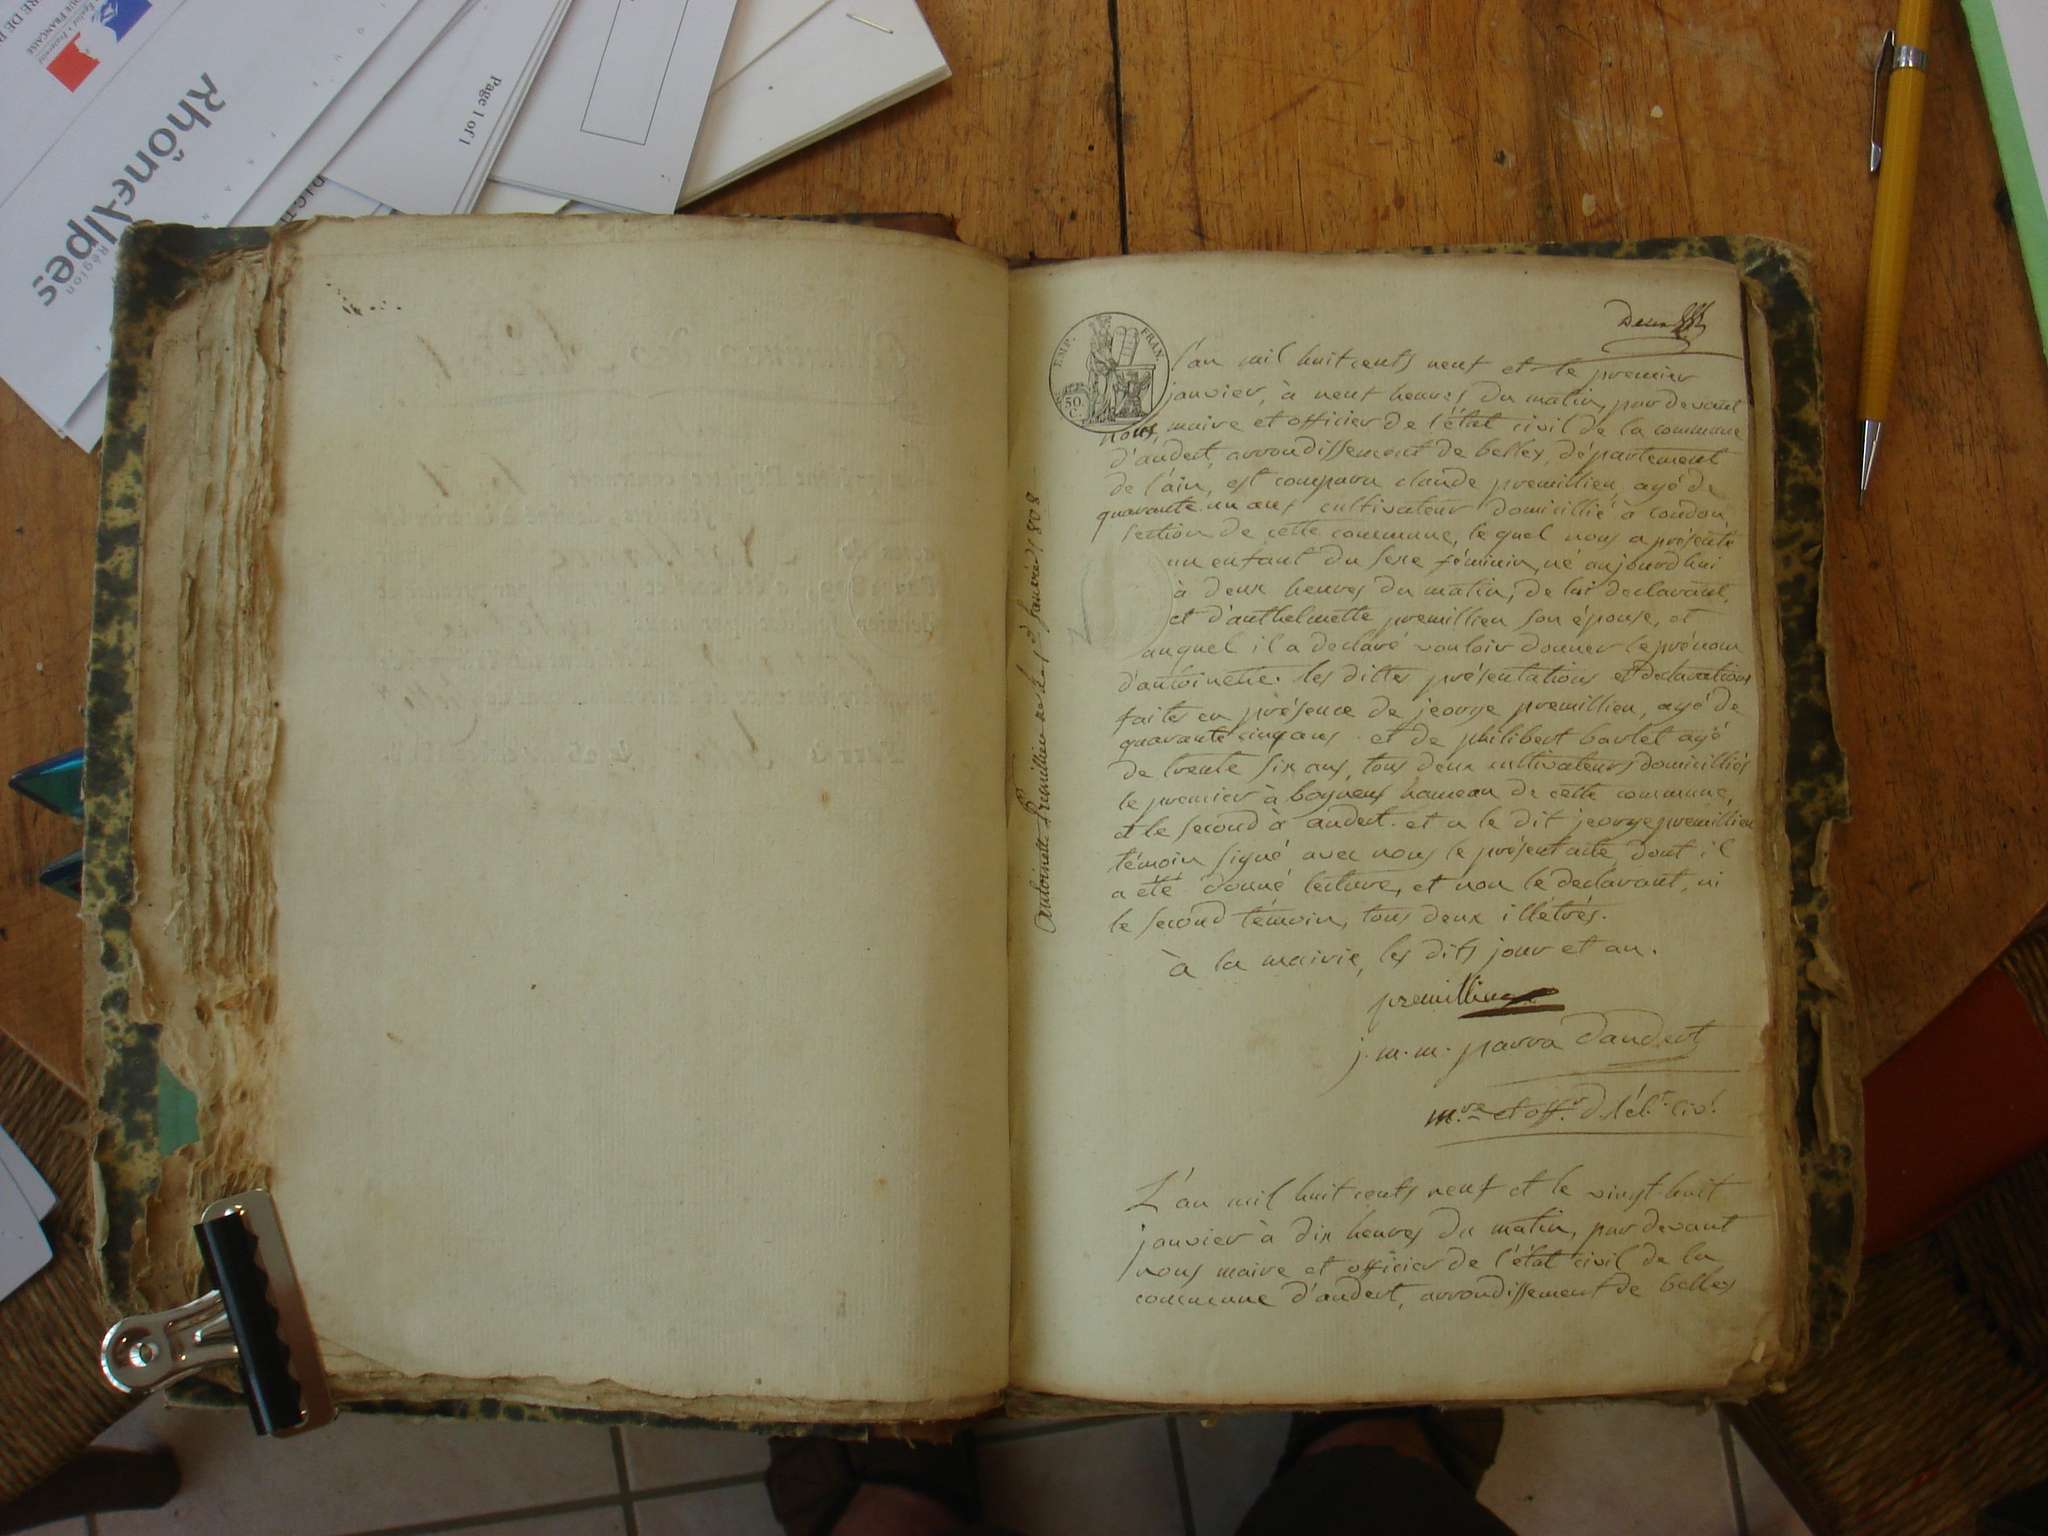 Rhône-Alpes
Région
Page 1 of 1
EMP. FRAN.
50
C.
l'an mil huit cents neuf et le premier
janvier, à neuf heures du matin, par devant
nous, maire et officier de l'état civil de la commune
d'andert, arrondissement de belley, département
de l'ain, est comparu claude premillieu, agé de
quarante un ans cultivateur domicillié à condon
section de cette commune, le quel nous a présenté
un enfant du sexe féminin, né aujourdhui
à deux heures du matin, de lui declarant,
et d'anthelmette premillieu son épouse, et
auquel il a declaré vouloir donner le prénom
d'antoinette. les dittes présentations et declarations
faites en présence de jeorge premillieu, agé de
quarante cinq ans. et de philibert barlet agé
de trente six ans, tous deux cultivateurs domicilliés
le premier à bognens hameau de cette commune,
et le second à andert. et a le dit jeorge premillieu
témoin signé avec nous le présent acte, dont il
a été donné lecture, et non le declarant, ni
le second témoin, tous deux illétrés.
à la mairie, les dits jour et an.
premillieu
j. m. m. parra d'andert
m.re et off.r d. l'ét.t civ.l
L'an mil huit cents neuf et le vingt-huit
janvier à dix heures du matin, par devant
nous maire et officier de l'état civil de la
commune d'andert, arrondissement de belley
antoinette Premillieu née le 1er janvier 1808